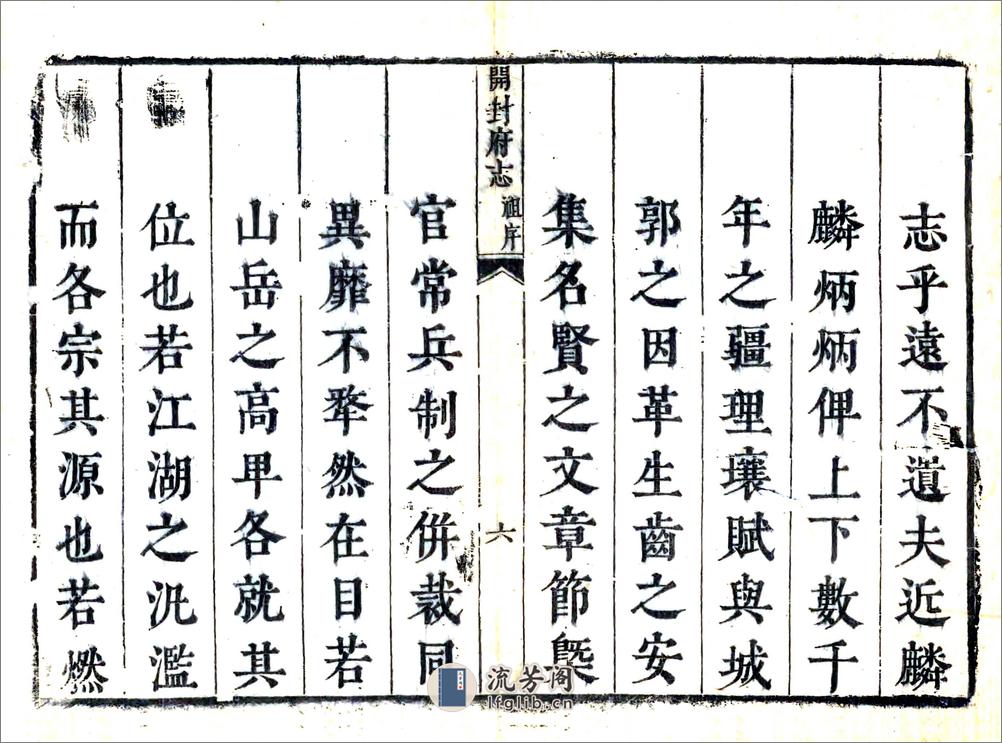 志乎遠不遺夫近麟
麟炳炳俾上下數千
年之疆理壤賦與城
郭之因革生齒之安
集名賢之文章節槩
開封府志 祖序
六
官常兵制之併裁同
異靡不犂然在目若
山岳之高卑各就其
位也若江湖之汎濫
而各宗其源也若燃
流芳阁
lfglib.cn